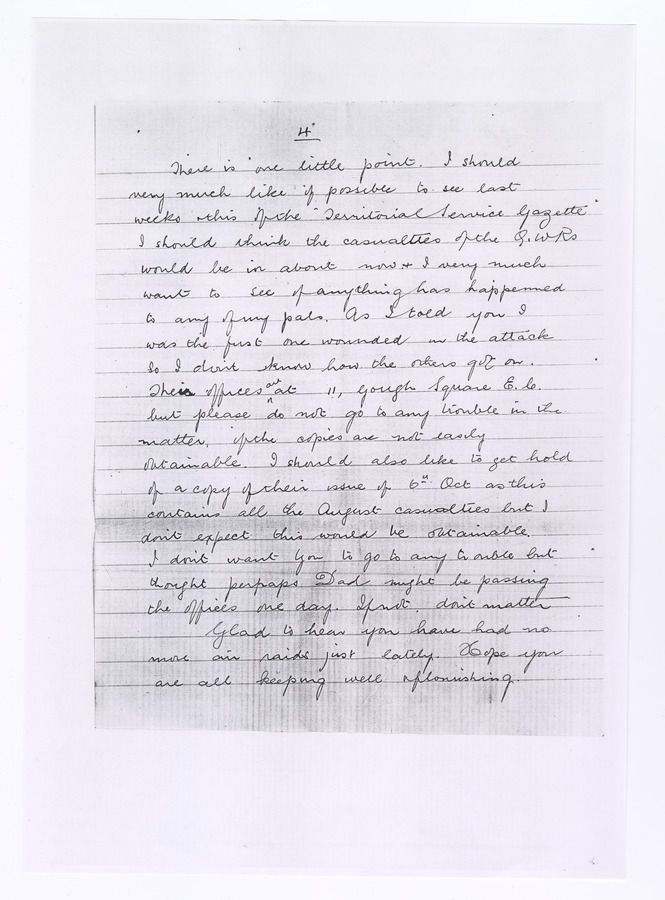 4
There is one little point. I should
very much like if possible to see last
weeks & this of the "Territorial Service Gazette"
I should think the casualties of the Q.W.Rs
would be in about now & I very much
want to see if anything has happened
to any of my pals. As I told you I
was the first one wounded in the attack
so I don't know how the others got on.
Their offices are at 11, Gough Square E.C.
but please do not go to any trouble in the
matter, if the copies are not easily
obtainable. I should also like to get hold
of a copy of their issue of 6th Oct as this
contains all the August casualties but I
don't expect this would be obtainable.
I don't want you to go to any trouble but
thought perhaps Dad might be passing
the offices one day. If not, don't matter
Glad to hear you have had no
more air raids just lately. Hope you
are all keeping well & flourishing.